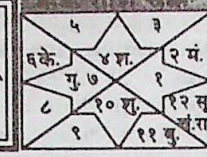 ५ ३
६के. ४ श. २ मं.
गु. ७ १
८ १० शु. १२ सू
९ ११ बु. चं.रा